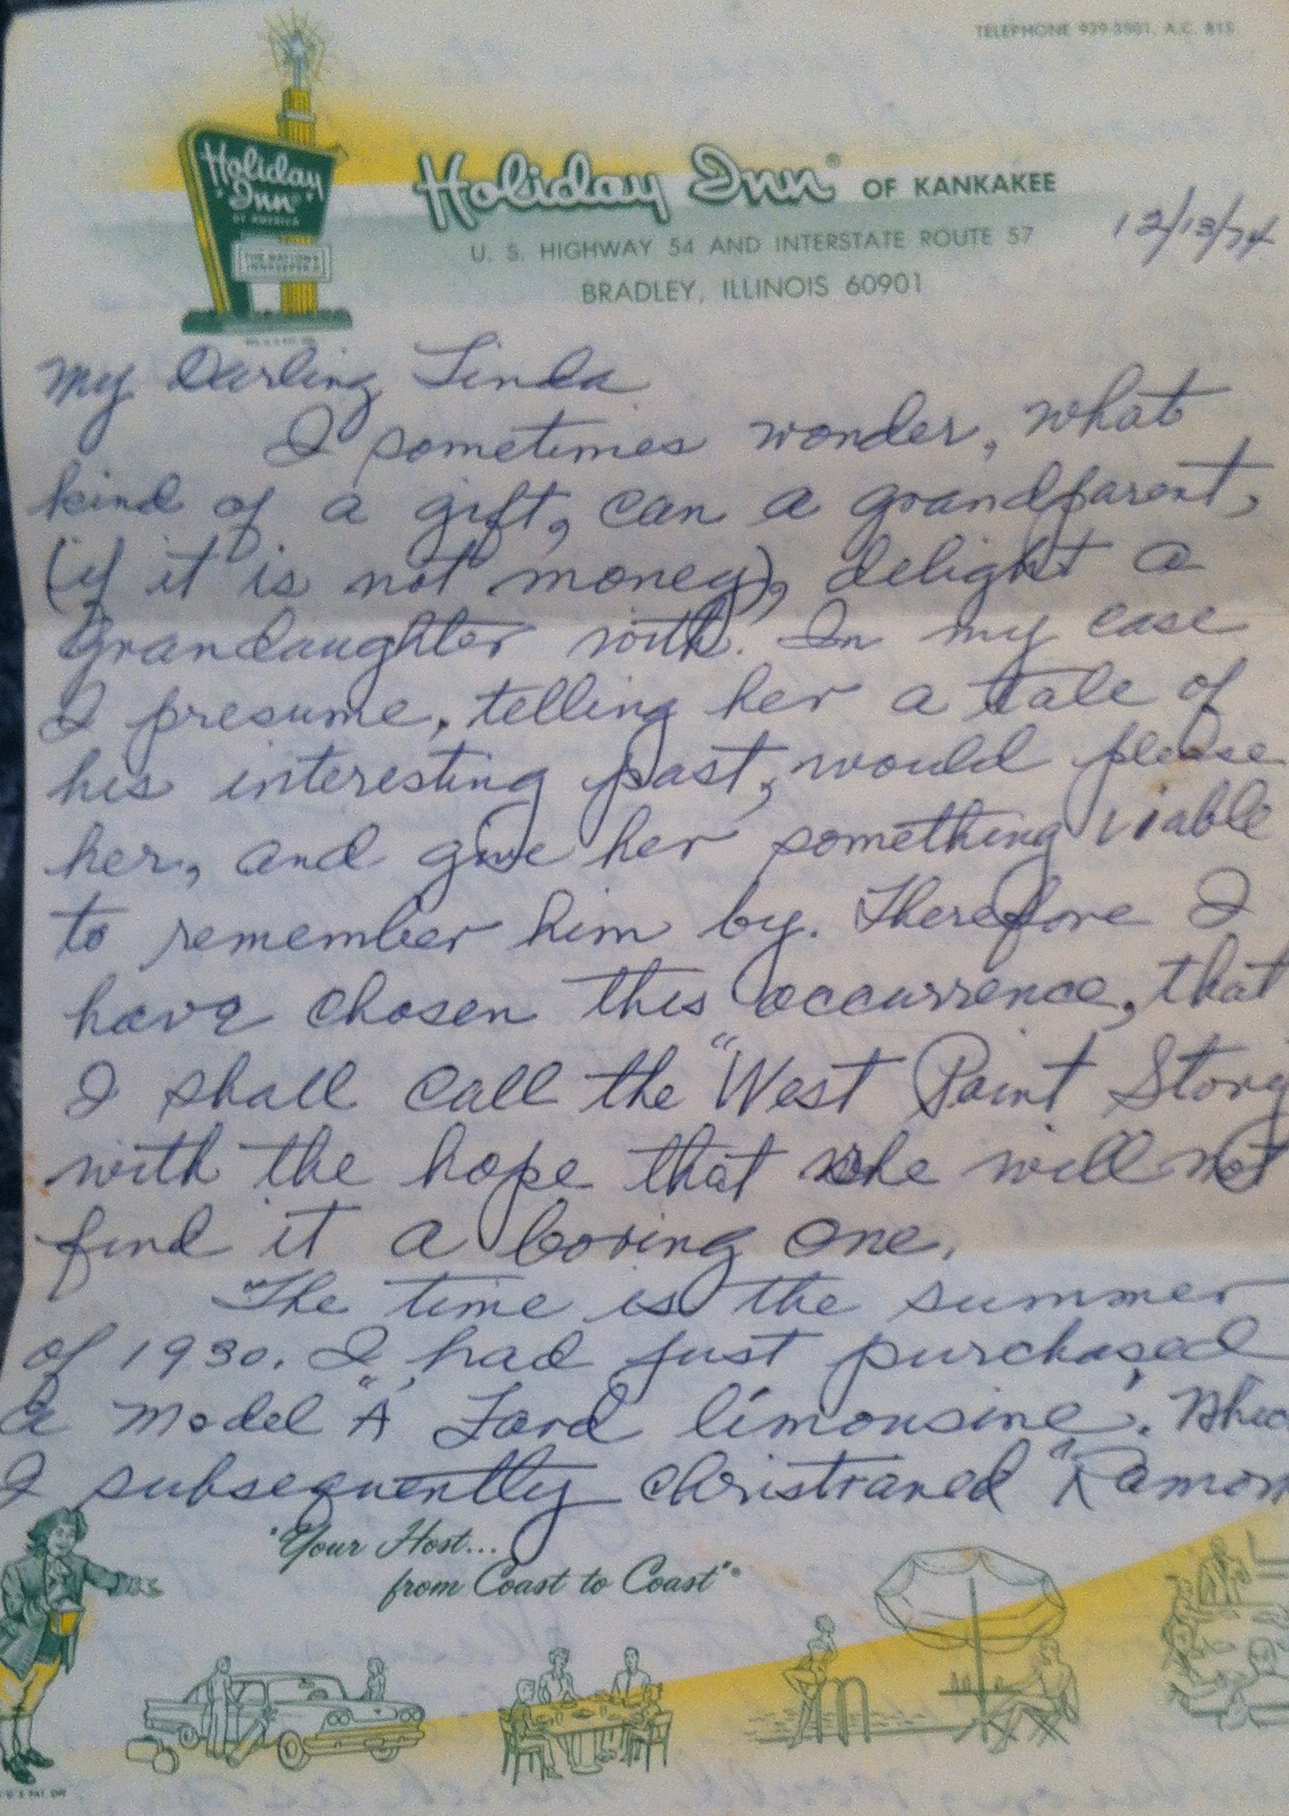 TELEPHONE 939-3501, A.C. 815
Holiday Inn® OF KANKAKEE
Holiday
Inn®
OF AMERICA
THE NATION'S
INNKEEPER
U. S. HIGHWAY 54 AND INTERSTATE ROUTE 57
BRADLEY, ILLINOIS 60901
12/13/74
My Darling Linda
I sometimes wonder, what
kind of a gift, can a grandparent,
(if it is not money), delight a
Grandaughter with. In my case
I presume, telling her a tale of
his interesting past, would please
her, and give her something viable
to remember him by. Therefore I
have chosen this occurrence, that
I shall call the "West Point Story
with the hope that she will not
find it a boring one.
The time is the summer
of 1930. I had just purchased
a Model "A" Ford limousine. Whic
I subsequently christraned "Ramon
"Your Host...
from Coast to Coast"®
U.S. PAT. OFF